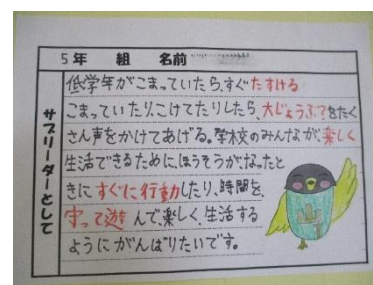 5年 組 名前
サブリーダーとして
低学年がこまっていたら、すぐたすける
こまっていたり、こけてたりしたら、大じょうぶ?をたく
さん声をかけてあげる。学校のみんなが、楽しく
生活できるために、ほうそうがなったと
きにすぐに行動したり、時間を、
守って遊んで、楽しく、生活する
ようにがんばりたいです。